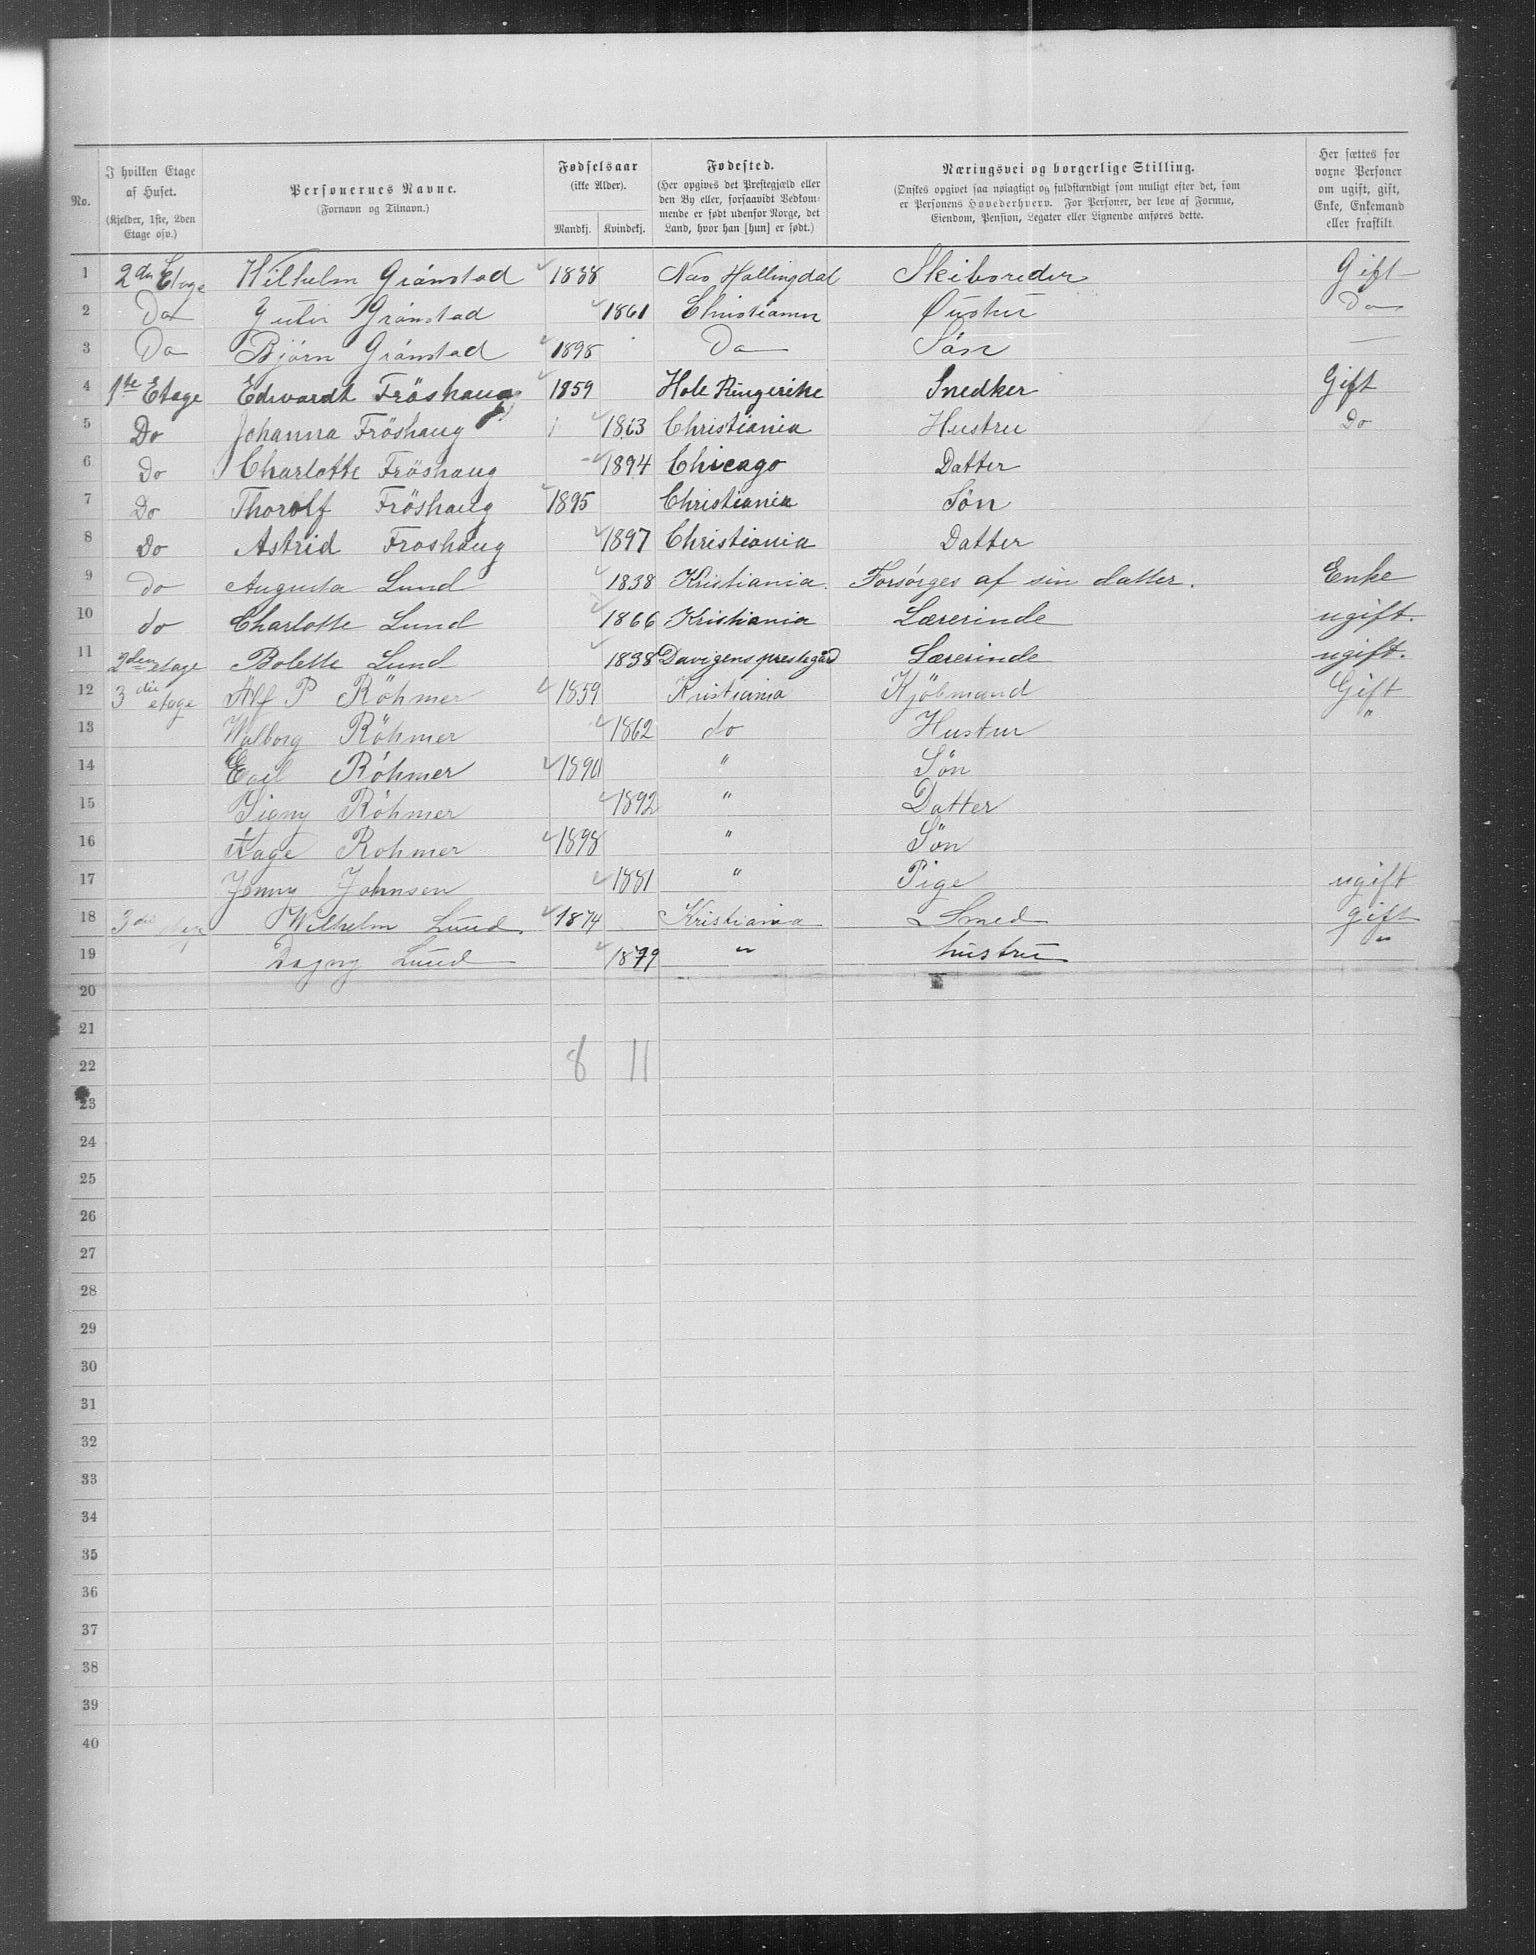 No.
I hvilken Etage af Huset.
(Kjelder, 1ste, 2den Etage osv.)
Personernes Navne.
(Fornavn og Tilnavn.)
Fødselsaar
(ikke Alder).
Mandkj. Kvindekj.
Fødested.
(Her opgives det Prestegjæld eller
den By eller, forsaavidt Vedkom-
mende er født udenfor Norge, det
Land, hvor han [hun] er født.)
Næringsvei og borgerlige Stilling.
(Ønskes opgivet saa nøiagtigt og fuldstændigt som muligt efter det, som
er Personens Hovederhverv. For Personer, der leve af Formue,
Eiendom, Pension, Legater eller Lignende anføres dette.
Her sættes for
voxne Personer
om ugift, gift,
Enke, Enkemand
eller fraskilt.
1 2den Etage Wilhelm Grönstad 1838 Nas Hallingdal Skibsreder Gift
2 Do Grönstad 1861 Christiania Do
3 Do Bjørn Grönstad 1898 Do Søn —
4 1te Etage Edwardt Fröshaug 1859 Hole Ringerike Snedker Gift
5 Do Johanna Fröshaug 1863 Christiania Hustru Do
6 Do Charlotte Fröshaug 1894 Chicago Datter
7 Do Thorolf Fröshaug 1895 Christiania Sön
8 Do Astrid Froshaug 1897 Christiania Datter
9 do Augusta Lund 1838 Kristiania. Forsørges af sin datter. Enke
10 do Charlotte Lund 1866 Kristiania Lærerinde ugift.
11 2den etage Bolette Lund 1838 Davigens prestegård Lærerinde ugift.
12 3die etage Alf P Röhmer 1859 Kristiania Kjöbmand Gift
13 Walborg Röhmer 1862 do Hustru "
14 Egil Röhmer 1890 " Sön
15 Signy Röhmer 1892 " Datter
16 Aage Rohmer 1898 " Sön
17 Jenny Johnsen 1881 " Pige ugift
18 3die Wilhelm Lund 1874 Kristiania Smed gift
19 Dagny Lund 1879 " hustru "
20
21
22 8 11
23
24
25
26
27
28
29
30
31
32
33
34
35
36
37
38
39
40